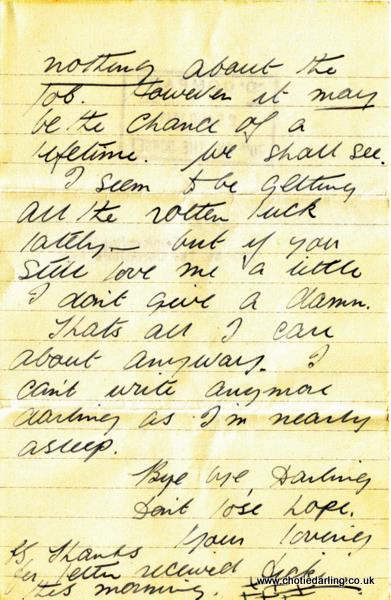 nothing about the
job. However it may
be the chance of a
lifetime. We shall see.
I seem to be getting
all the rotten luck
lately — but if you
still love me a little
I don't give a damn.
Thats all I care
about anyway. I
can't write anymore
darling as I'm nearly
asleep.
Bye bye, Darling
Don't lose hope.
Your loving
Dicky
PS, Thanks
for letter received
this morning.
www.chotiedarling.co.uk